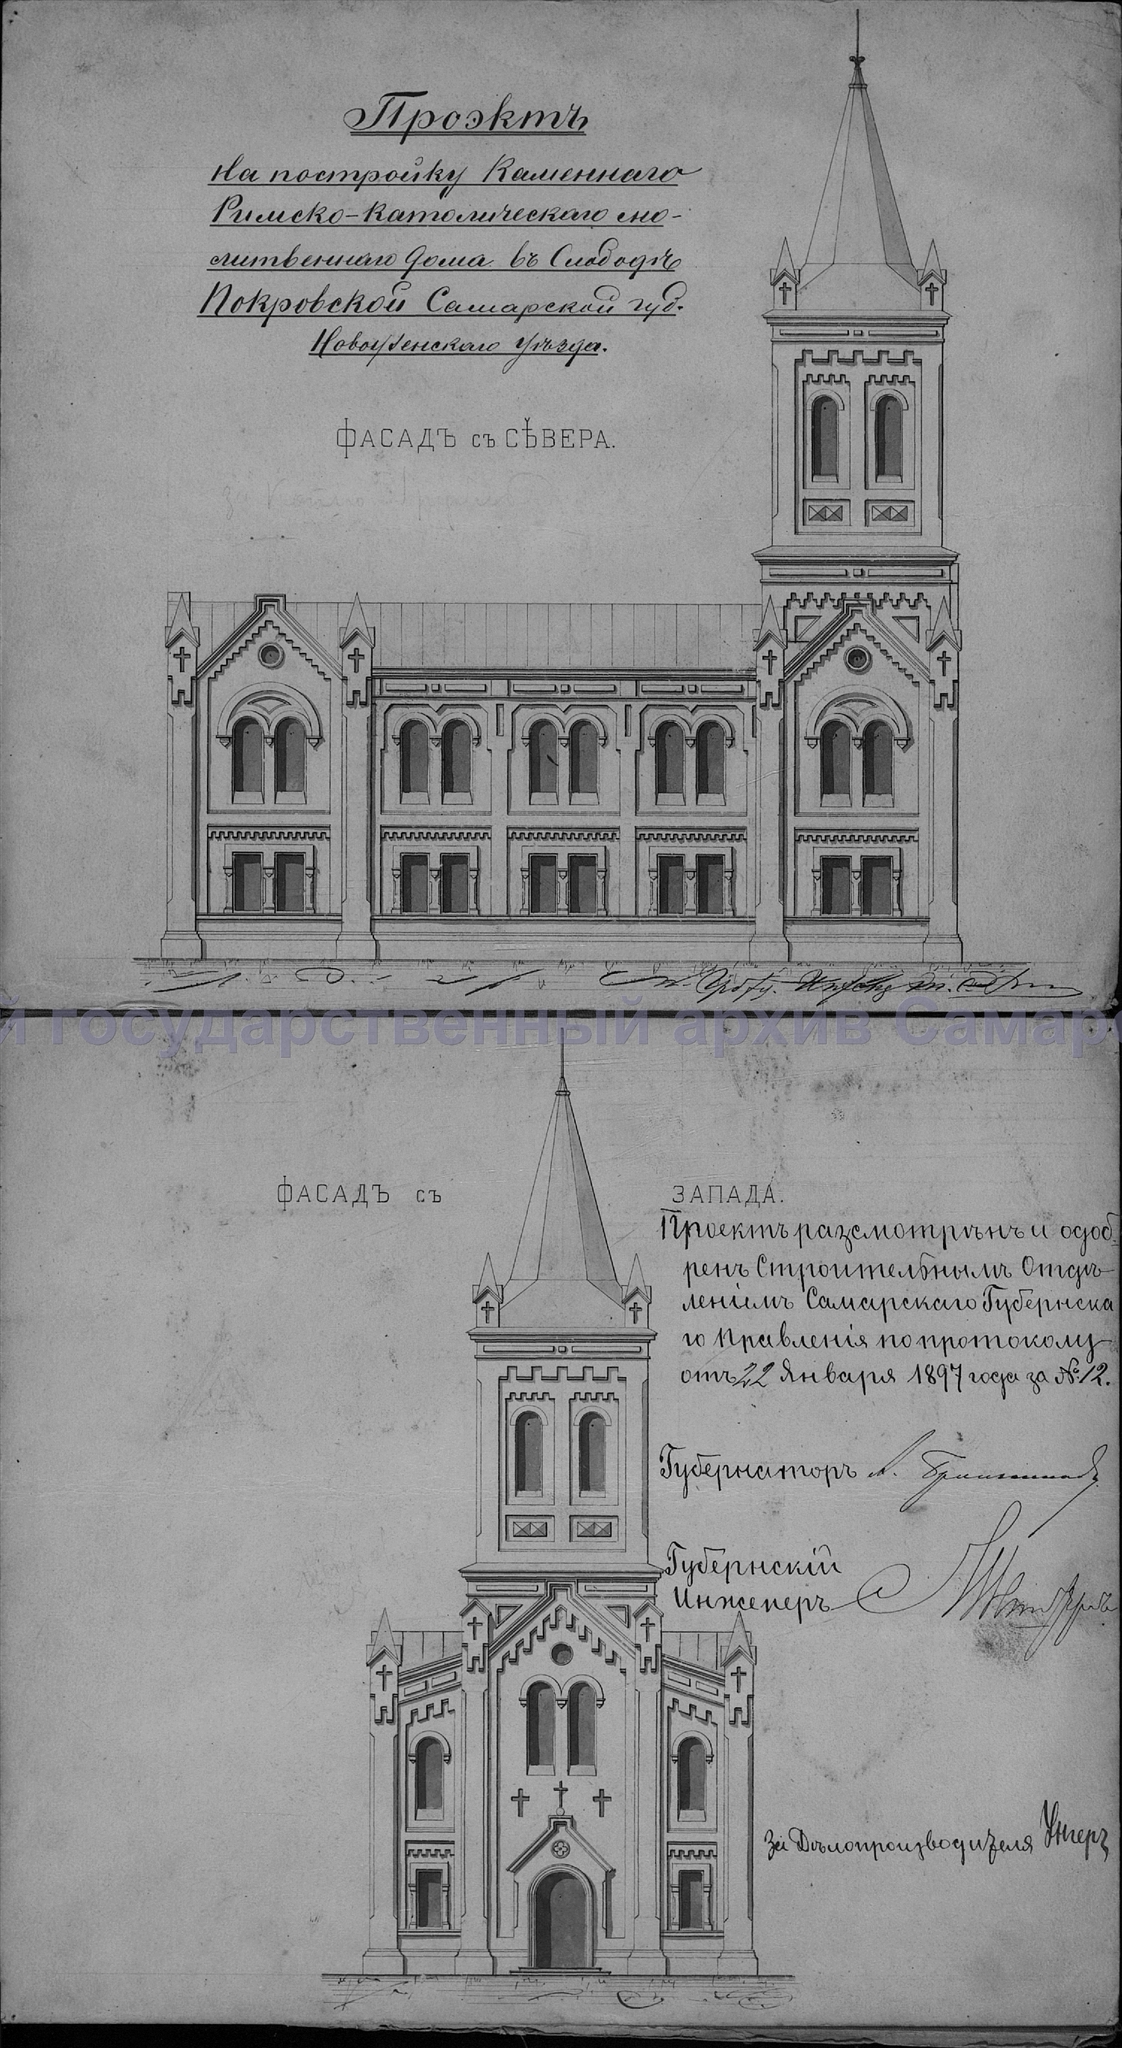 Проэктъ
На постройку Каменнаго
Римско-Католическаго мо-
литвеннаго дома въ Слободѣ
Покровской Самарской губ.
Новоузенскаго уѣзда.
ФАСАДЪ съ СѢВЕРА.
й государственный архив Самарс
ФАСАДЪ съ ЗАПАДА.
Проектъ разсмотрѣнъ и одоб-
ренъ Строительнымъ Отдѣ-
леніемъ Самарскаго Губернска
го Правленія по протоколу
отъ 22 Января 1897 года за № 12.
Губернаторъ А. Брянчаниновъ
Губернскій
Инженеръ
За Дѣлопроизводителя Унгеръ